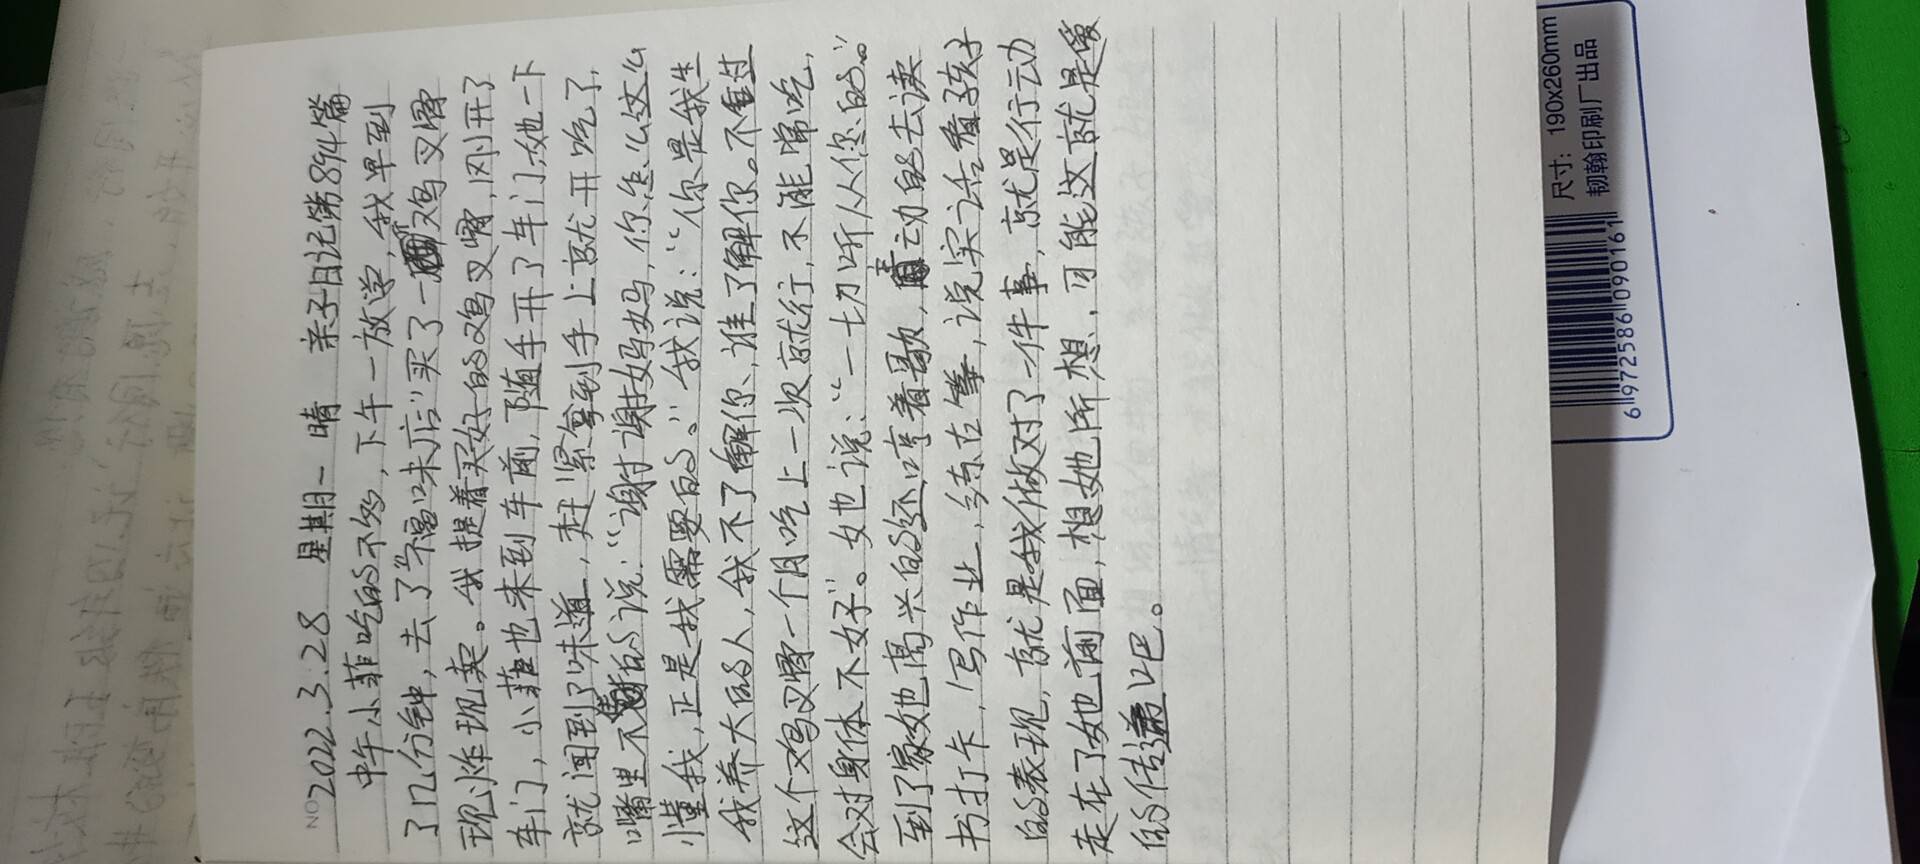 NO.
2022.3.28 星期一 晴 亲子日记第894篇
中午小菲吃的不多,下午一放学,我早到
了几分钟,去了“福味店”买了一 鸡叉骨
现炸现卖。我提着买好的鸡叉骨,刚开了
车门,小菲也来到车前,随手开了车门,她一下
就闻到了味道,赶紧拿到手上就开吃了,
嘴里不 的说:“谢谢妈妈,你怎么这么
懂我,正是我需要的。”我说:“你是我生
我养大的人,我不了解你,谁了解你。不过
这个鸡叉骨一个月吃上一次就行,不能常吃,
会对身体不好”。她说:“一切听从您的。”
到了家她高兴的还哼着歌,主动的去读
书打卡,写作业,练古筝,说实话看孩子
的表现,就是我做对了一件事,就是行动
走在了她前面,想她所想,可能这就是爱
的传递吧。
尺寸:190x260mm
韧翰印刷厂出品
6972586109016 1